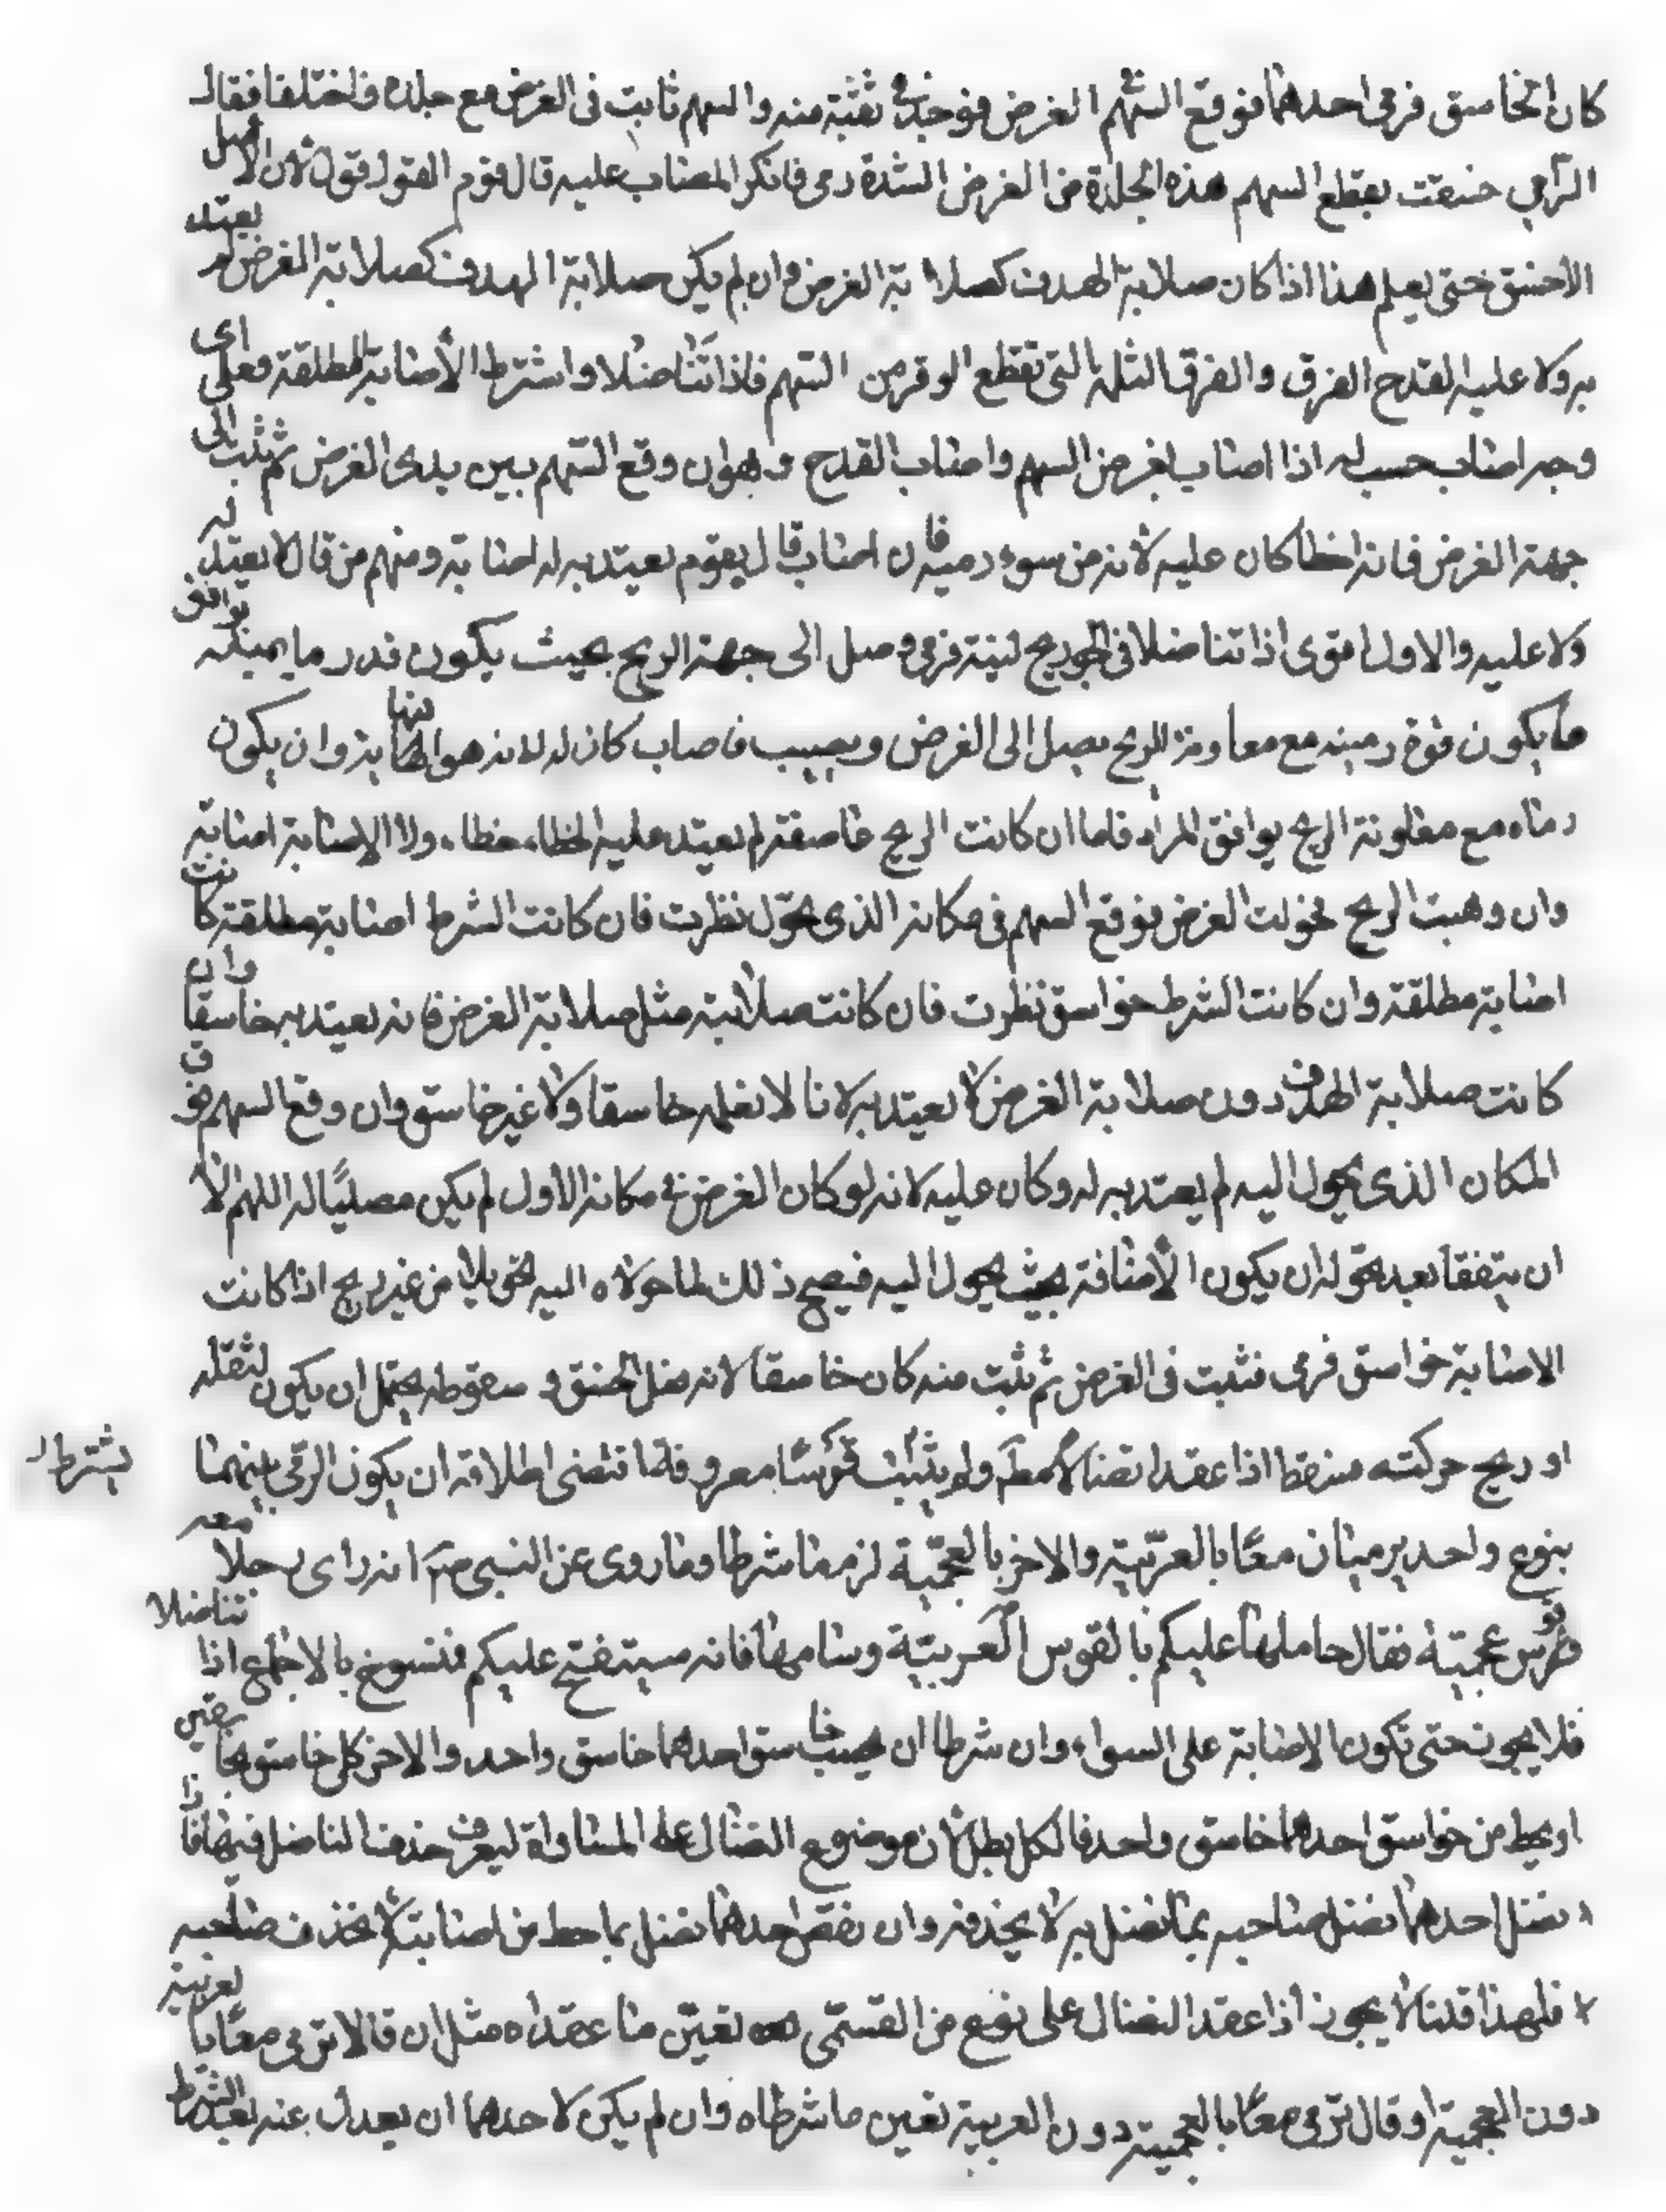 كان الخاسق فرمى احدهما فوقع السهم الغرض فوجد في ثقبة منه والسهم ثابت فى الغرض مع جلده فاختلفا فقال
الرامي خسقت بقطع السهم هذه الجلدة من الغرض لشدة رمى فانكر المصاب عليه قال قوم القول قول لان الاصل
الاخسق حتى يعلم هذا اذا كان صلابة الهدف كصلابة الغرض وان لم يكن صلابة الهدف كصلابة الغرض لم يعتد
به ولا عليه القدح الفرق والفرق الثلمة التى تقطع الوقر من السهم فاذا تناضلا واشترط الأصابة المطلقة فعلى اى
وجه اصاب حسب له اذا اصاب لغرض السهم واصاب القدح وهوان وقع السهم بين يدى الغرض ثم يثب الى
جهة الغرض فانه اخطا كان عليه لانه من سوء رميه فان اصاب قال قوم يعتد به له اصابة ومنهم من قال لا يعتد له
ولا عليه والاول اقوى اذا تناضلا فى الجو ريح لينة فرمى وصل الى جهة الريح بحيث يكون قدر ما يميله يوافق
ما يكون قوة رميه مع معاونة الريح يصل الى الغرض ويصيب فاصاب كان له لانه هو النهاية وان يكون
رماه مع معاونة الريح يوافق المراد فاما ان كانت الريح عاصفة لم يعتد عليه الخطاء خطاء ولا الاصابة اصابة
وان وهبت الريح فحولت الغرض فوقع السهم فى مكانه الذى تحوّل نظرت فان كانت الشرط اصابة مطلقة كانت
اصابة مطلقة وان كانت الشرط خواسق نظرت فان كانت صلابته مثل صلابة الغرض فانه يعتد به خاسقا وان
كانت صلابة الهدف دون صلابة الغرض لا يعتد به لانا لا نعلمه خاسقا ولا غير خاسق وان وقع السهم فوق
المكان الذى يحول اليه لم يعتد به له وكان عليه لانه لو كان الغرض فى مكانه الاول لم يكن مصليًا له اللهم الا
ان يتفقا بعد تحوله ان يكون الأصافة بحيث يحول اليه فيصح ذلك لما حولاه اليه تحويلا من غير ريح اذا كانت
الاصابة خواسق فرمى فثبت فى الغرض ثم ثبت منه كان خاسقا لانه فعل الخسق و سقوطه يحتمل ان يكون لثقله
او ريح حركته فسقط اذا عقدا نضالا مطلقا ولم يثبت قوسًا معروفة اقتضى اطلاقه ان يكون الرمى بينهما يشترط
بنوع واحد يرميان معًا بالعربية والاخر بالعجمية لزمهما شرطا وما روى عن النبى ص انه راى رجلا معه
قوس عجمية فقال حاملها عليكم بالقوس العربية وسهامها فانه سيفتح عليكم فنسوخ بالاجماع اذا تناضلا
فلا يجوز حتى تكون الاصابة على السواء وان شرطا ان يحسب خاسق احدهما خاسق واحد والاخر كل خاسق بخاسقين
او يحط من خواسق احدهما خاسق واحد فالكل بطل لان موضوع النضال على المساواة ليعرف حذف الناضل فيها فاذا
فضل احدهما فضل صاحبه بما فضل به لا بحذفه وان نقص احدهما فضل بما حط من اصابته لا بحذف صاحبه
فلهذا قلنا لا يجوز اذا عقد النضال على نوع من القسى تعيّن ما عقداه مثل ان قالا نرمى معًا بالعربية
دون العجمية او قال نرمى معًا بالعجمية دون العربية تعين ما شرطاه وان لم يكن لاحدهما ان يعدل عنه بعد الشرط